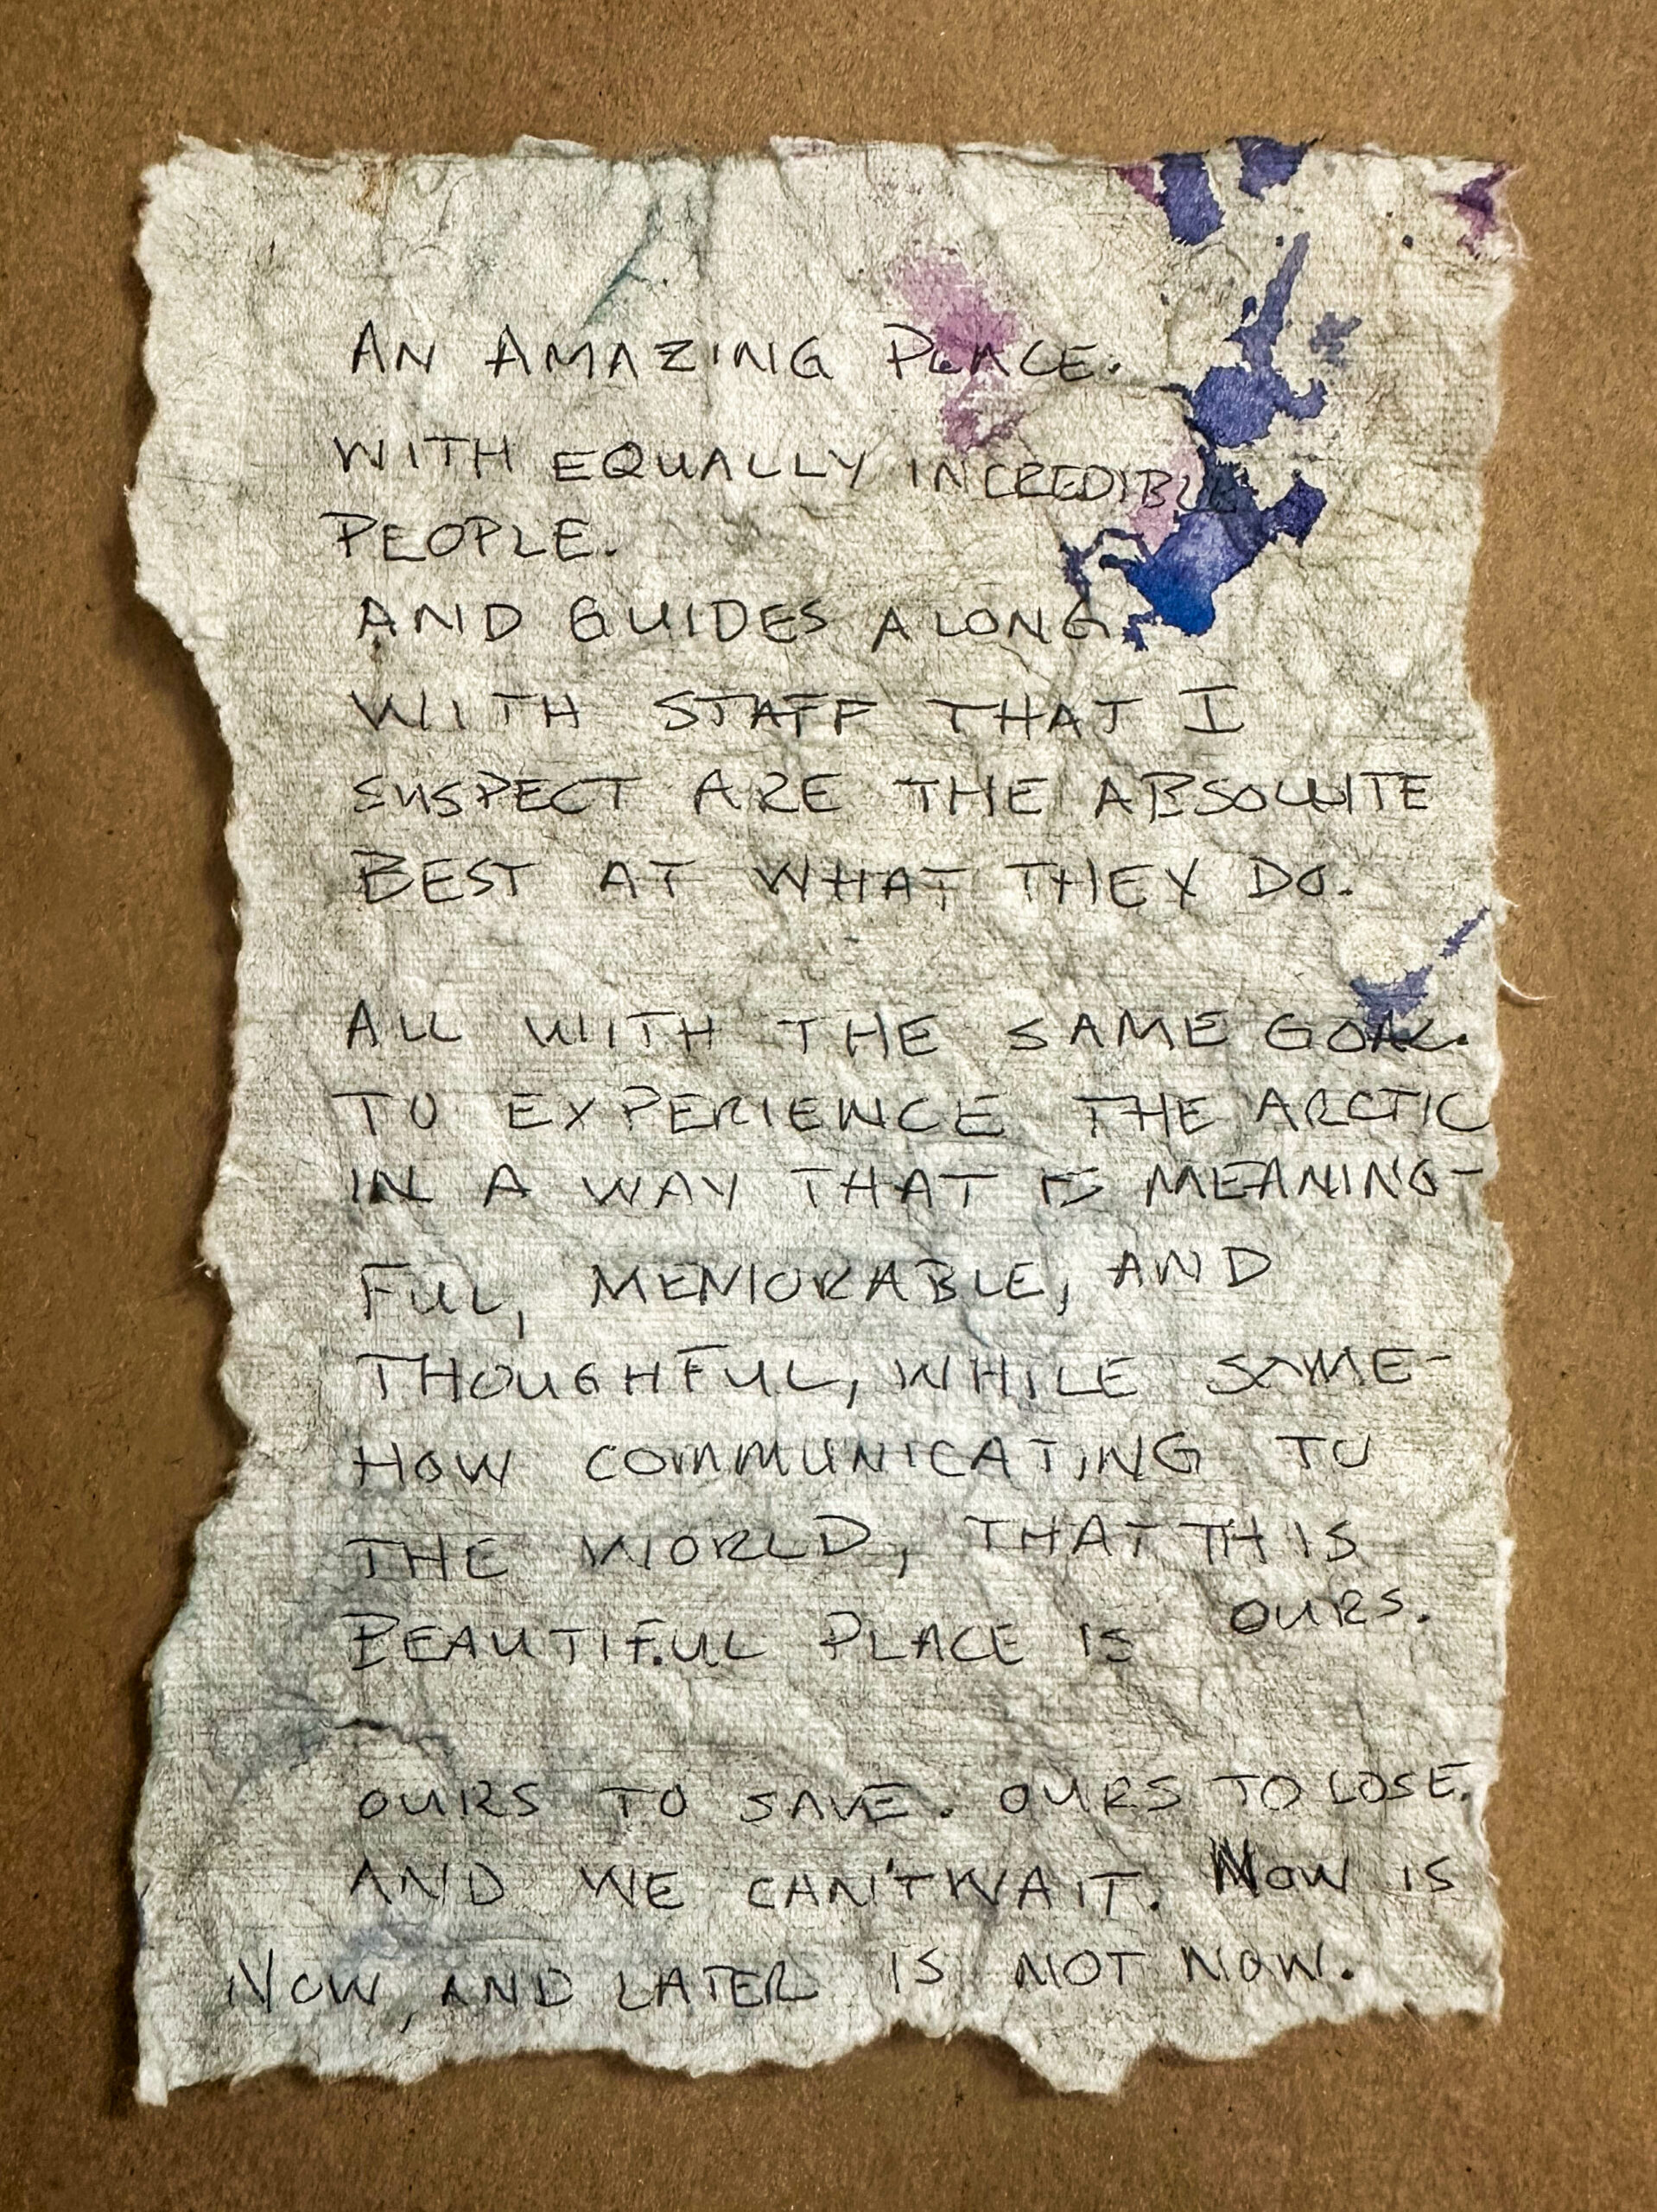 AN AMAZING PLACE.
WITH EQUALLY INCREDIBLE
PEOPLE.
AND GUIDES ALONG
WITH STAFF THAT I
SUSPECT ARE THE ABSOLUTE
BEST AT WHAT THEY DO.
ALL WITH THE SAME GOAL.
TO EXPERIENCE THE ARCTIC
IN A WAY THAT IS MEANING-
FUL, MEMORABLE, AND
THOUGHFUL, WHILE SOME-
HOW COMMUNICATING TO
THE WORLD, THAT THIS
BEAUTIFUL PLACE IS OURS.
OURS TO SAVE. OURS TO LOSE.
AND WE CAN'T WAIT. NOW IS
NOW, AND LATER IS NOT NOW.